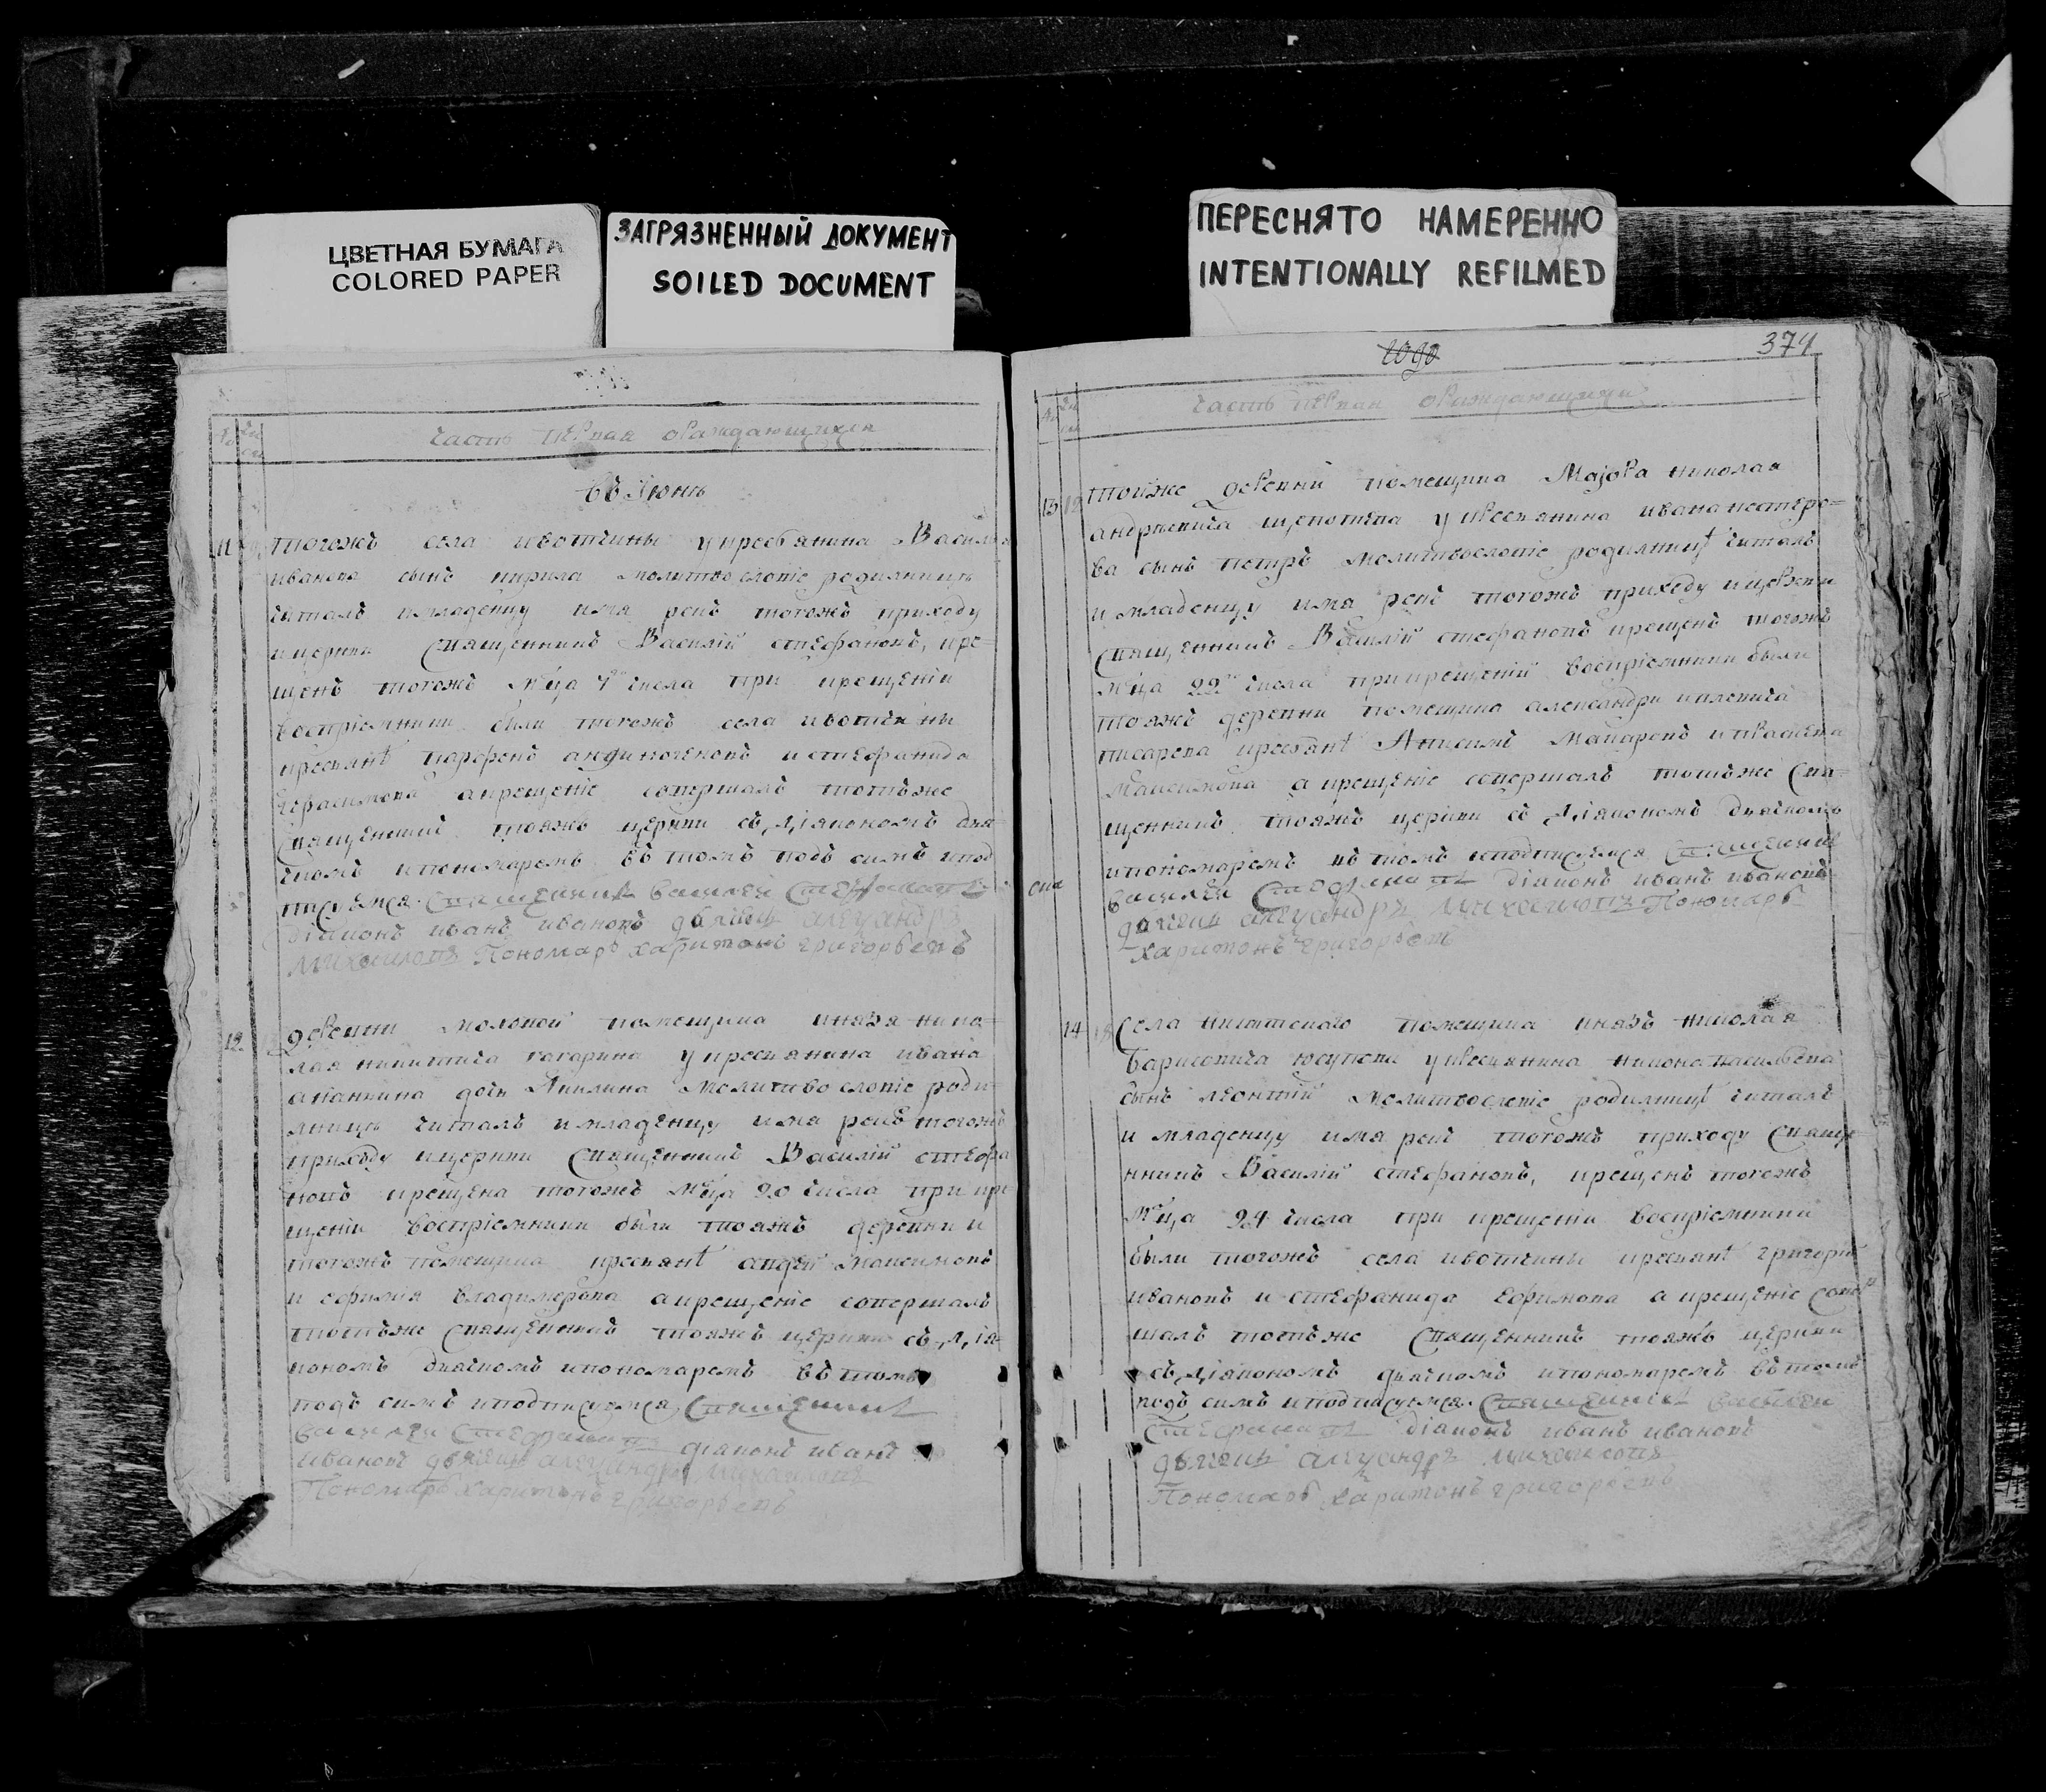 ЦВЕТНАЯ БУМАГА
COLORED PAPER
ЗАГРЯЗНЕННЫЙ ДОКУМЕНТ
SOILED DOCUMENT
ПЕРЕСНЯТО НАМЕРЕННО
INTENTIONALLY REFILMED
часть первая ораждающихся
въ Июнѣ
11 тогожъ села ивотчины укресьянина Василья
иванова сынъ кирила молитвословіе родилницѣ
читалъ имладенцу имя рекъ тогожъ приходу
ицеркви священникъ Василій стефановъ, кре-
щенъ тогожъ мца числа при крещеніи
воспріемники были тогожъ села ивотчины
кресьянѣ парфенъ и стефанида
герасимова акрещеніе совершалъ тотъже
священникъ тояжъ церкви съ діякономъ дья-
чкомъ ипономаремъ въ томъ подъ симъ ипод
писуемся священникъ василей Стефановъ
діаконъ иванъ ивановъ дьячекъ алеѯандръ
михаиловъ Пономарь харитонъ григорьевъ
12 деревни помещика князя нико-
лая никитича гагарина укресьянина ивана
ананкина дочь Акилина молитвословіе роди-
лницѣ читалъ имладенцу имя рекъ тогожъ
приходу ицеркви священникъ Василій стефа
новъ крещена тогожъ мца 20 числа при кре
щеніи воспріемники были тояжъ деревни и
тогожъ помещика кресьянѣ андрей максимовъ
и ефимия владимерова акрещеніе совершалъ
тотъже священникъ тояжъ церкви съ дія-
кономъ дьячкомъ ипономаремъ въ томъ
подъ симъ иподписуемся священникъ
василей Стефановъ діаконъ иванъ
ивановъ дьячекъ алеѯандръ михаиловъ
Пономарь харитонъ григорьевъ
году
374
часть первая ораждающихся
13 тойже деревни помещика Маjора николая
андреевича щепотева укресьянина ивана нестеро-
ва сынъ петръ молитвословіе родилницѣ читалъ
и младенцу имя рекъ тогожъ приходу ицеркви
священникъ Василій стефановъ крещенъ тогожъ
мца 22 числа при крещеніи воспріемники были
тояжъ деревни помещика александры
писарева кресьянѣ Анисимъ Макаровъ
Максимова а крещеніе совершалъ тотъже свя-
щенникъ тояжъ церкви съ діякономъ дьячкомъ
ипономаремъ въ томъ иподписуемся священникъ
василей Стефановъ діаконъ иванъ ивановъ
дьячекъ алеѯандръ Михаиловъ Пономарь
харитонъ григорьевъ
14 Села никитскаго помещика князь николая
Борисовича юсупова укресьянина васильева
сынъ леонтій молитвословіе родилницѣ читалъ
и младенцу имя рекъ тогожъ приходу свяще
нникъ Василій стефановъ, крещенъ тогожъ
мца 24 числа при крещеніи воспріемники
были тогожъ села ивотчины кресьянѣ григорій
ивановъ и стефанида ефимова а крещеніе совер
шалъ тотъже священникъ тояжъ церкви
съ діякономъ дьячкомъ ипономаремъ въ томъ
подъ симъ иподписуемся священникъ василей
Стефановъ діаконъ иванъ ивановъ
дьячекъ алеѯандръ михаиловъ
Пономарь харитонъ григорьевъ